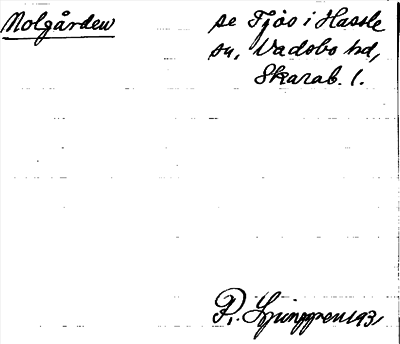 Nolgården
se Fjös i Hassle
sn, Vadsbo hd,
Skarab. l.
P. Ljunggren 1931